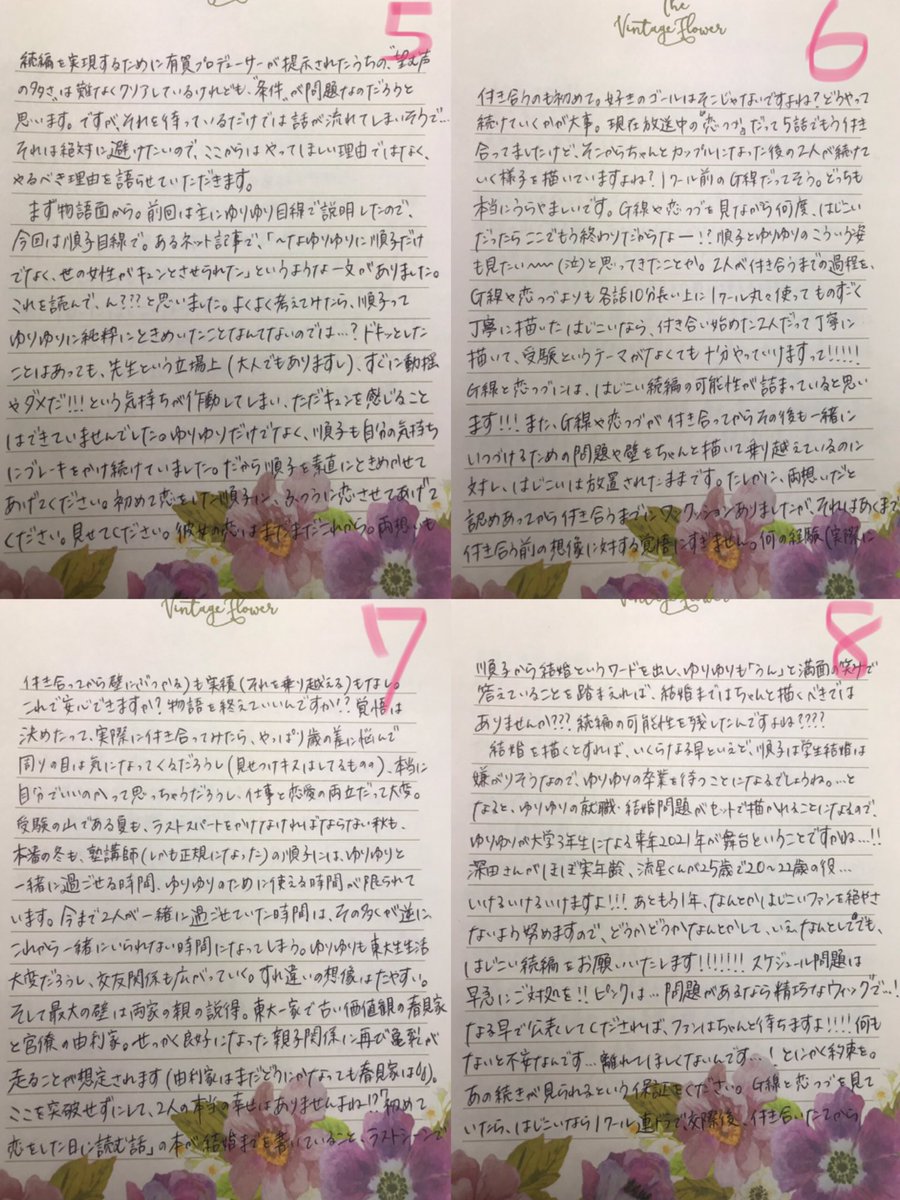 5
続編を実現するために有賀プロデューサーが提示されたうちの、"望む声
の多さ"は難なくクリアしているけれども、"条件"が問題なのだろうと
思います。ですが、それを待っているだけでは話が流れてしまいそうで…
それは絶対に避けたいので、ここからはやってほしい理由ではなく、
やるべき理由を語らせていただきます。
まず物語面から。前回は主にゆりゆり目線で説明したので、
今回は順子目線で。あるネット記事で、「〜なゆりゆりに順子だけ
でなく、世の女性がキュンとさせられた」というような一文がありました。
これを読んで、ん???と思いました。よくよく考えてみたら、順子って
ゆりゆりに純粋にときめいたことなんてないのでは…?ドキッとした
ことはあっても、先生という立場上(大人でもありますし)、すぐに動揺
やダメだ!!!という気持ちが作動してしまい、ただキュンを感じること
はできていませんでした。ゆりゆりだけでなく、順子も自分の気持ち
にブレーキをかけ続けていました。だから順子を素直にときめかせて
あげてください。初めて恋をした順子に、ふつうに恋させてあげて
ください。見せてください。彼女の恋はまだまだこれから。両想いも
The
Vintage Flower
6
付き合うのも初めて。好きのゴールはそこじゃないですよね?どうやって
続けていくかが大事。現在放送中の"恋つづ"だって5話でもう付き
合ってましたけど、そこからちゃんとカップルになった後の2人が続けて
いく様子を描いていますよね?1クール前のG線だってそう。どっちも
本当にうらやましいです。G線や恋つづを見ながら何度、はじこい
だったらここでもう終わりだからなー!?順子とゆりゆりのこういう姿
も見たい〜〜(泣)と思ってきたことか。2人が付き合うまでの過程を、
G線や恋つづよりも各話10分長い上に1クール丸々使ってものすごく
丁寧に描いたはじこいなら、付き合い始めた2人だって丁寧に
描いて、受験というテーマがなくても十分やっていけますって!!!!!
G線と恋つづには、はじこい続編の可能性が詰まっていると思い
ます!!!また、G線や恋つづが付き合ってからその後も一緒に
いつづけるための問題や壁をちゃんと描いて乗り越えているのに
対し、はじこいは放置されたままです。たしかに、両想いだと
認めあってから付き合うまでにワンクッションありましたが、それはあくまで
付き合う前の想像に対する覚悟にすぎません。何の経験(実際に
Vintage Flower
7
付き合ってから壁にぶつかる)も実績(それを乗り越える)もなし。
これで安心できますか?物語を終えていいんですか!?覚悟は
決めたって、実際に付き合ってみたら、やっぱり歳の差に悩んで
周りの目は気になってくるだろうし(見せつけキスはしてるものの)、本当に
自分でいいのかって思っちゃうだろうし、仕事と恋愛の両立だって大変。
受験の山である夏も、ラストスパートをかけなければならない秋も、
本番の冬も、塾講師(しかも正規になった)の順子には、ゆりゆりと
一緒に過ごせる時間、ゆりゆりのために使える時間が限られて
います。今まで2人が一緒に過ごせていた時間は、その多くが逆に
これから一緒にいられない時間になってしまう。ゆりゆりも東大生生活
大変だろうし、交友関係も広がっていく。すれ違いの想像はたやすい。
そして最大の壁は両家の親の説得。東大一家で古い価値観の春見家
と官僚の由利家。せっかく良好になった親子関係に再び亀裂が
走ることが想定されます(由利家はまだどうにかなっても春見家は)。
ここを突破せずにして、2人の本当の幸せはありませんよね!?「初めて
恋をした日に読む話」の本が結婚までを書いていること、ラストシーンで
Vintage Flower
8
順子から結婚というワードを出し、ゆりゆりも「うん」と満面の笑みで
答えていることを踏まえれば、結婚まではちゃんと描くべきでは
ありませんか???続編の可能性を残したんですよね????
結婚を描くとすれば、いくらなる早といえど、順子は学生結婚は
嫌がりそうなので、ゆりゆりの卒業を待つことになるでしょうね。…と
なると、ゆりゆりの就職・結婚問題がセットで描かれることになるので、
ゆりゆりが大学3年生になる来年2021年が舞台ということですかね…!!
深田さんがほぼ実年齢、流星くんが25歳で20〜22歳の役…
いけるいけるいけますよ!!!あともう1年、なんとかはじこいファンを絶やさ
ないよう努めますので、どうかどうかなんとかして、いえ、なんとしてでも、
はじこい続編をお願いいたします!!!!!!!スケジュール問題は
早急にご対処を!!ピンクは…問題があるなら精巧なウィッグで…!
なる早で公表してくだされば、ファンはちゃんと待ちますよ!!!!何も
ないと不安なんです…離れてほしくないんです…!とにかく約束を。
あの続きが見られるという保証をください。G線と恋つづを見て
いたら、はじこいなら1クール連ドラで、交際後、付き合いたてから